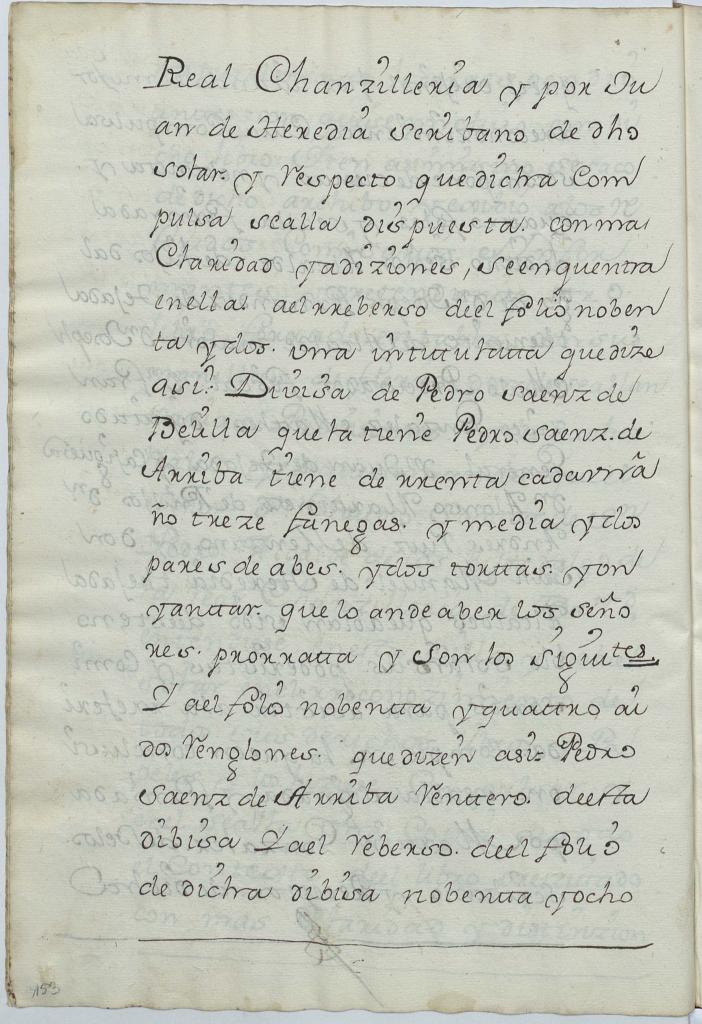 Real Chanzilleria y por Ju
an de Heredia scribano de dho
solar. y respecto que dicha Com
pulsa sealla dispuesta. con ma
Claridad yadiziones, seenquentra
enella. ael rreberso deel folio noben
ta ydos. una intitulatta que dize
asi: Divisa de Pedro saenz de
Belilla que la tiene Pedro saenz. de
Arriba tiene de rrenta cada vn a
ño treze fanegas. y media ydos
pares de abes. ydos torttas. yvn
yanttar. que lo an de aber los seño
res. prorratta y son los siguites.
Y ael folio nobentta yquattro ai
dos renglones. que dizen asi: Pedro
saenz de Arriba renttero. deesta
dibisa Y ael reberso. deel folio
de dicha dibisa nobentta yocho
153